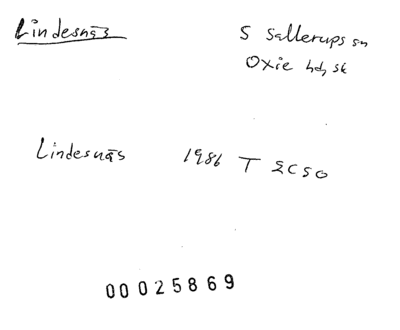 Lindesnäs
S Sallerups sn
Oxie hd, sk
Lindesnäs 1986 T ECSO
00025869